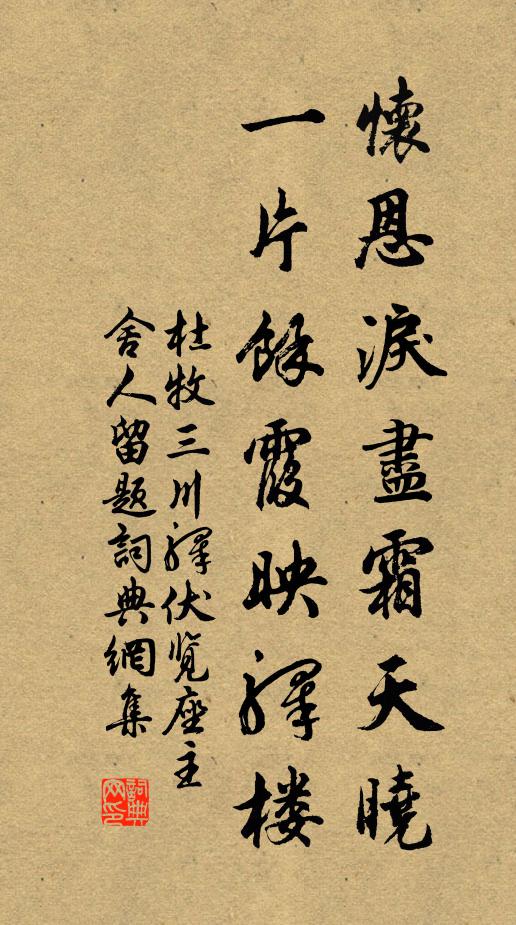 懷恩淚盡霜天曉
一片餘霞映驛楼
杜牧三川驛伏览座主
舍人留题詞典網集
詞典
网印